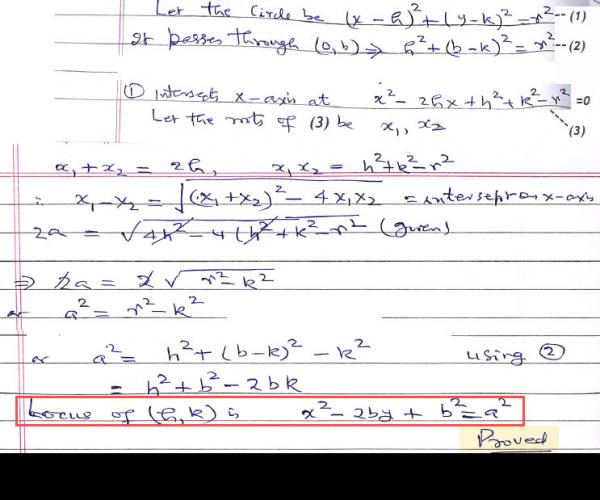 Let the Circle be (x - h)² + (y - k)² = r² -- (1)
It passes through (0, b) ⇒ h² + (b - k)² = r² -- (2)
① Intersects x-axis at x² - 2hx + h² + k² - r² = 0
Let the roots of (3) be x₁, x₂ (3)
x₁ + x₂ = 2h, x₁x₂ = h² + k² - r²
∴ x₁ - x₂ = √((x₁ + x₂)² - 4x₁x₂) = intersept on x-axis
2a = √(4h² - 4(h² + k² - r²) (given)
⇒ 2a = 2√(r² - k²)
or a² = r² - k²
or a² = h² + (b - k)² - k² using ②
= h² + b² - 2bk
Locus of (h, k) is x² - 2by + b² = a²
Proved